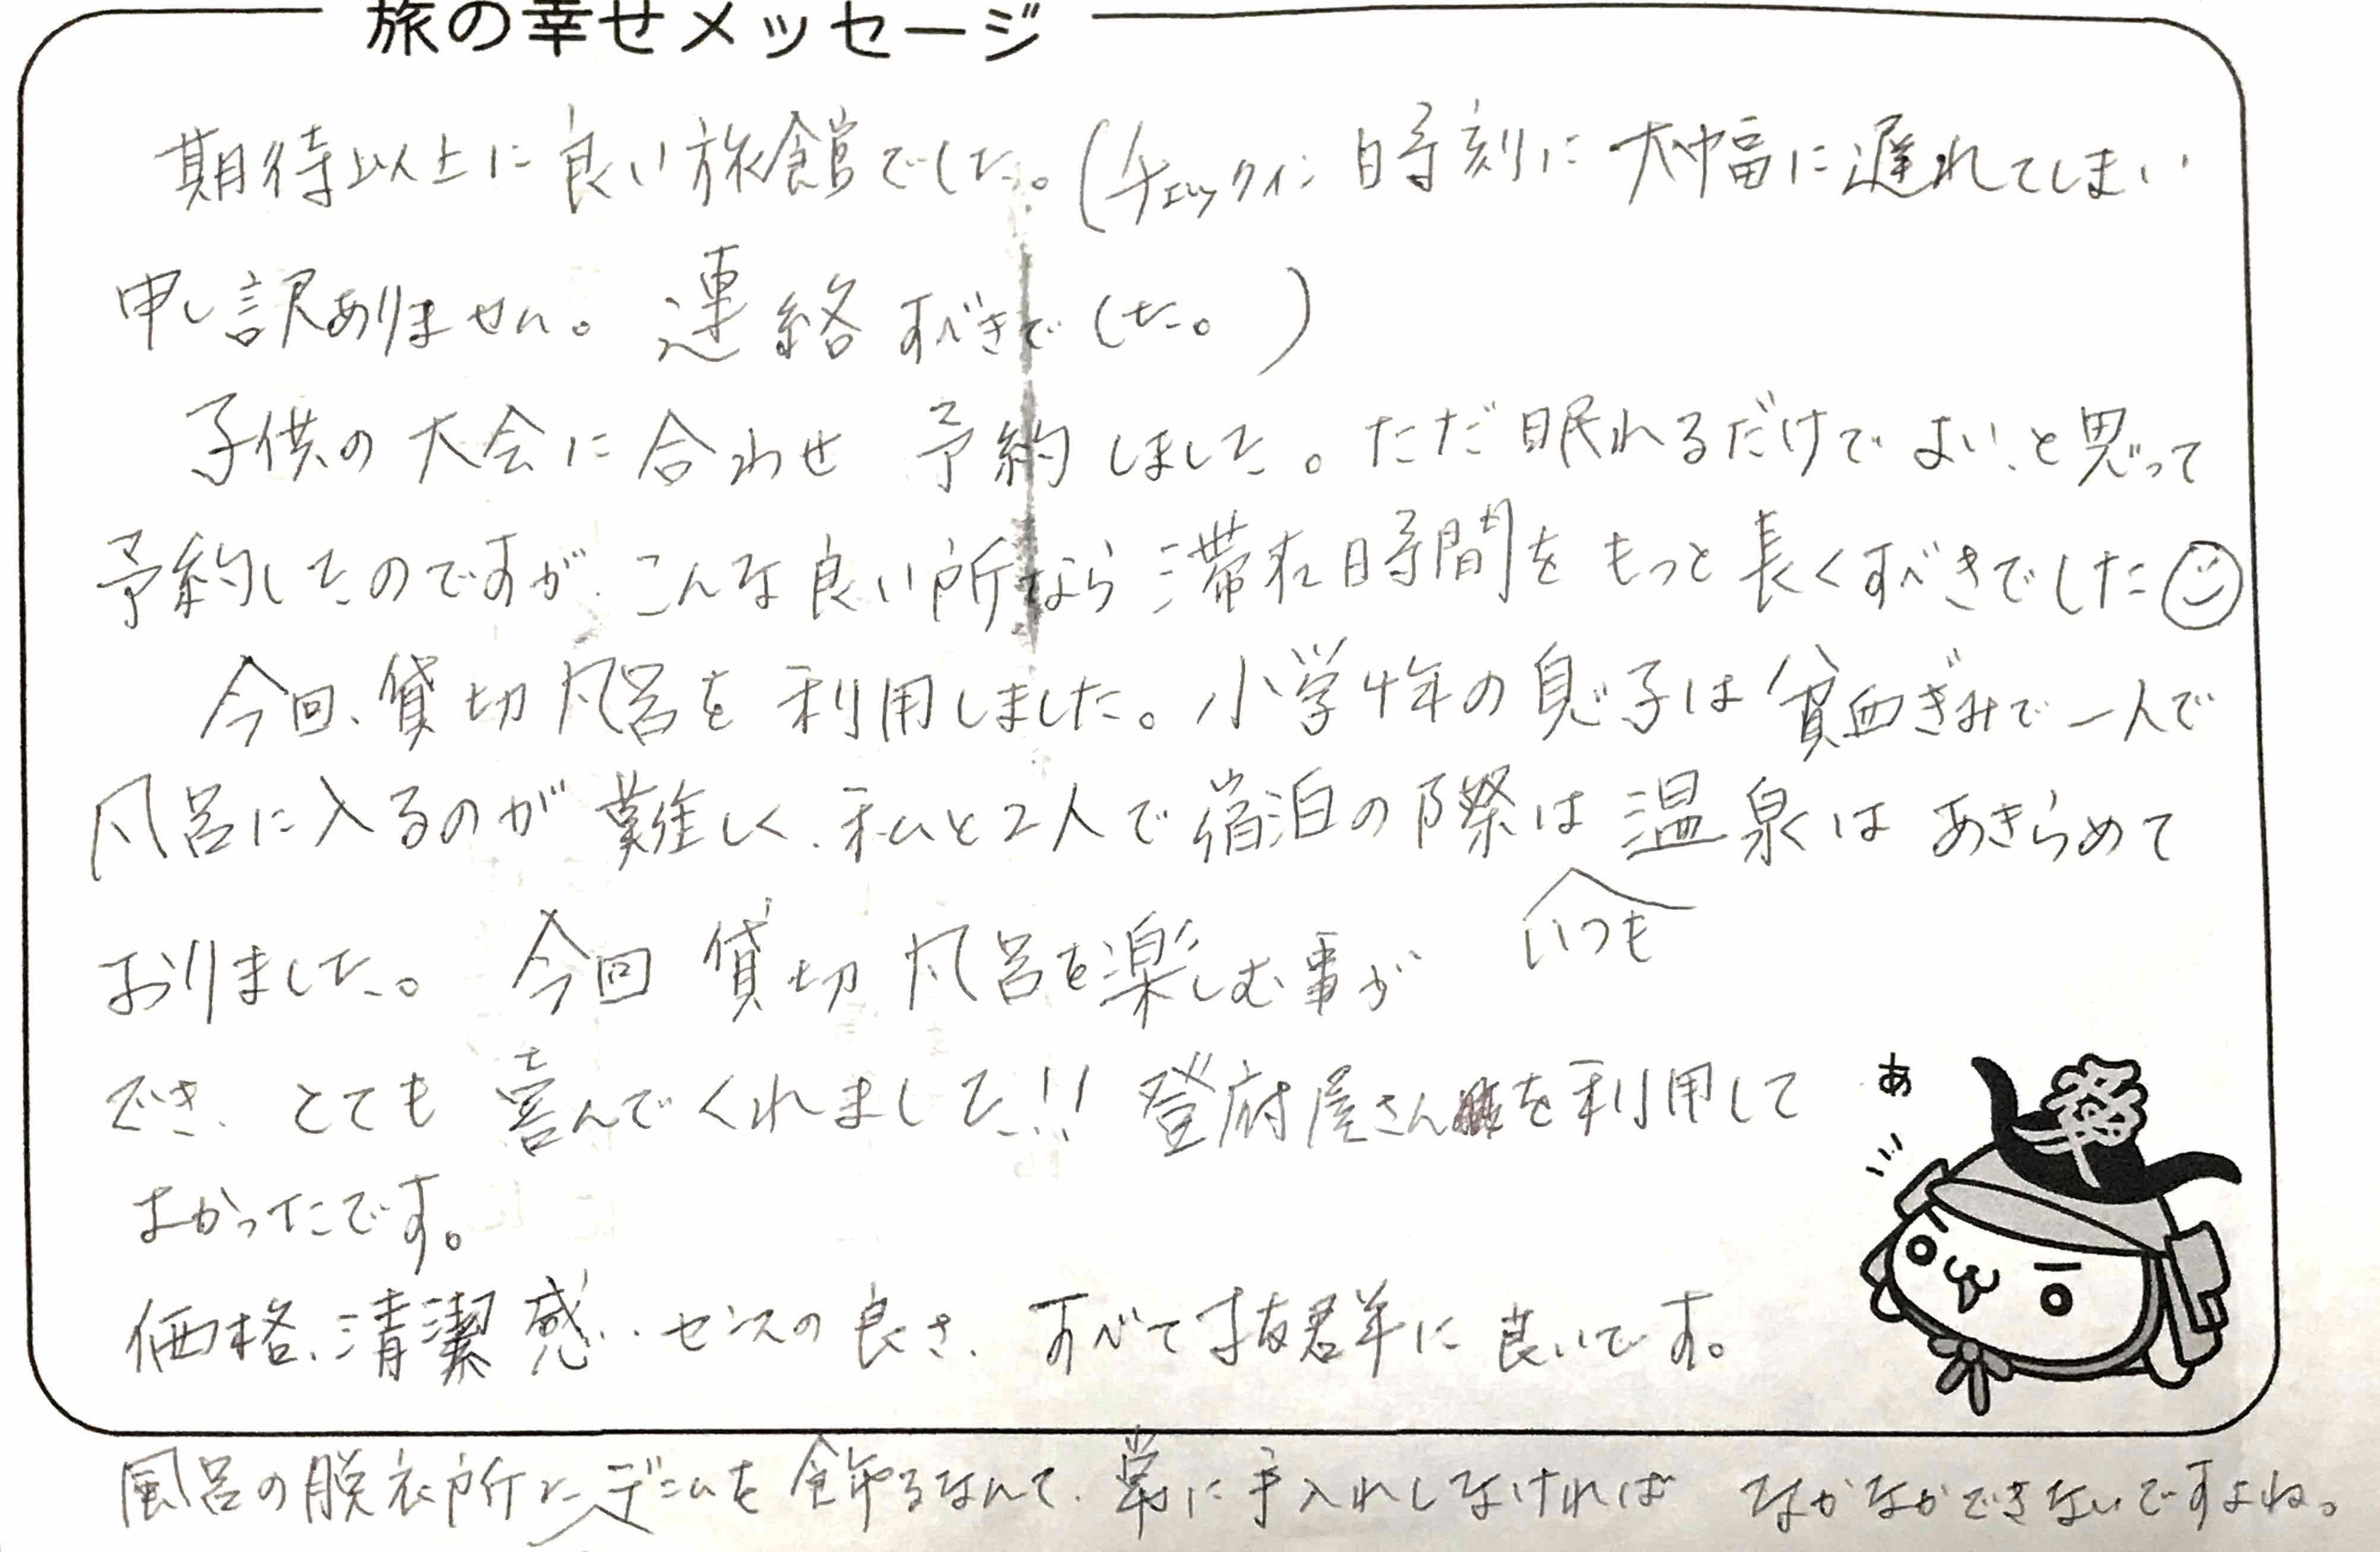 旅の幸せメッセージ
期待以上に良い旅館でした。(チェックイン時刻に大幅に遅れてしまい
申し訳ありません。連絡すべきでした。)
子供の大会に合わせ予約しました。ただ眠れるだけでよい、と思って
予約したのですが、こんな良い所なら滞在時間をもっと長くすべきでした
今回、貸切風呂を利用しました。小学4年の息子は貧血ぎみで一人で
風呂に入るのが難しく、私と2人で宿泊の際は温泉はあきらめて
いつも
おりました。今回貸切風呂を楽しむ事が
でき、とても喜んでくれました!! 登府屋さんを利用して
よかったです。
あ
価格、清潔感、センスの良さ、すべて抜群に良いです。
風呂の脱衣所にデニムを飾るなんて、常に手入れしなければ なかなかできないですよね。